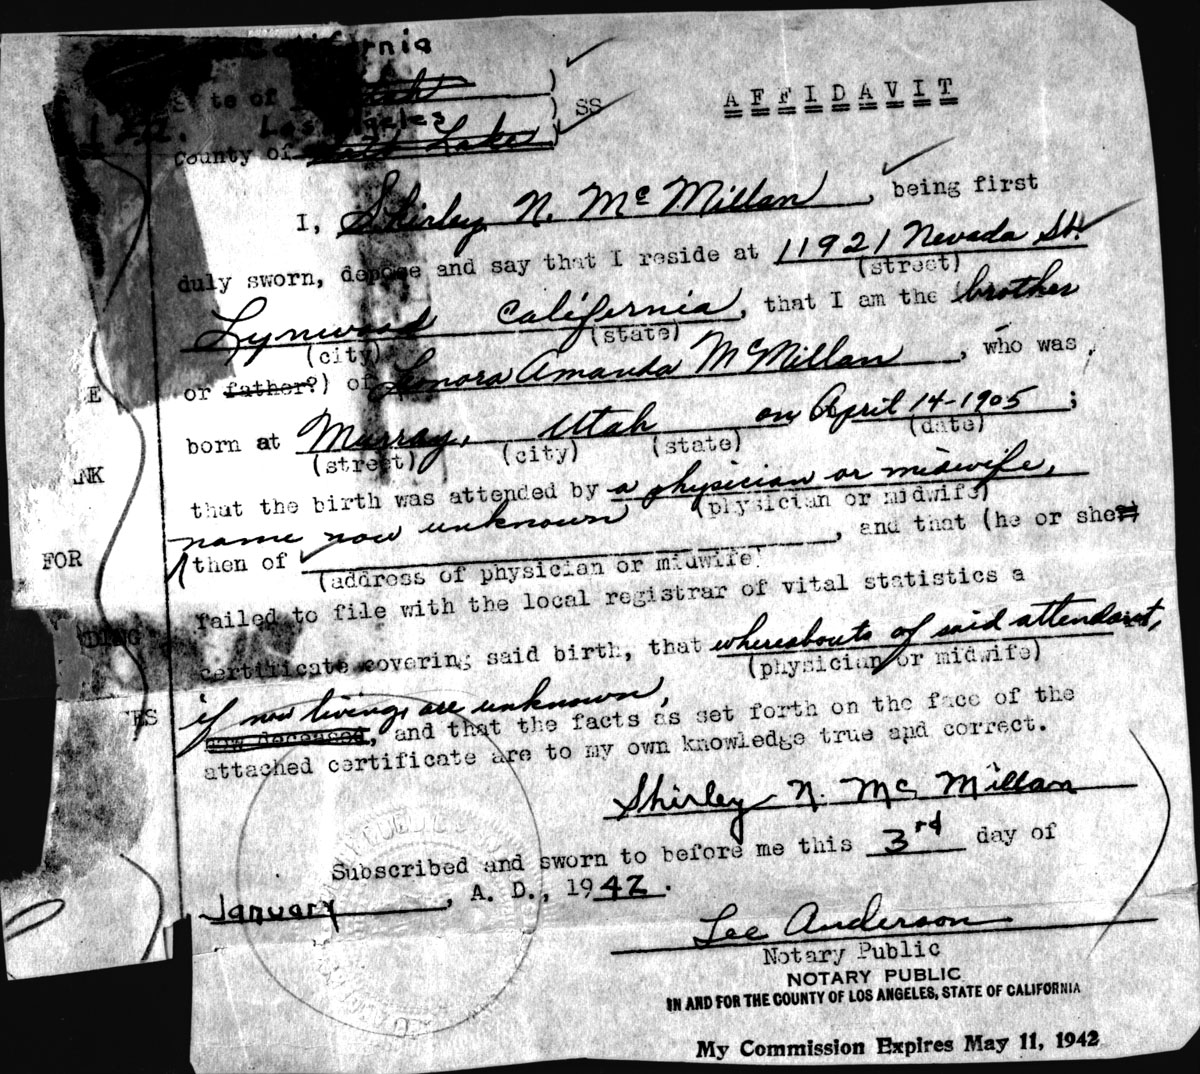 California
State of Utah )
) SS
Los Angeles
County of Salt Lake )
AFFIDAVIT
I, Shirley N. McMillan, being first
duly sworn, depose and say that I reside at 11921 Nevada St.
(street)
Lynwood California, that I am the (brother
(city) (state)
or father?) of Lenora Amanda McMillan, who was
born at Murray, Utah on April 14-1905;
(street) (city) (state) (date)
that the birth was attended by a physician or midwife,
(physician or midwife)
name now unknown
then of , and that (he or she)
(address of physician or midwife)
failed to file with the local registrar of vital statistics a
certificate covering said birth, that whereabouts of said attendant,
(physician or midwife)
if now living, are unknown,
now deceased, and that the facts as set forth on the face of the
attached certificate are to my own knowledge true and correct.
Shirley N. McMillan
Subscribed and sworn to before me this 3rd day of
January, A. D., 1942.
Lee Anderson
Notary Public
NOTARY PUBLIC
IN AND FOR THE COUNTY OF LOS ANGELES, STATE OF CALIFORNIA
My Commission Expires May 11, 1942
FOR